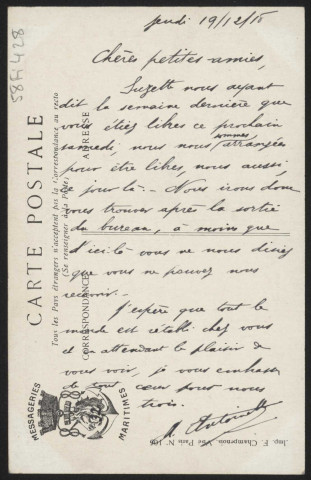 58Fi428
jeudi 19/12/18
Chères petites amies,
Suzette nous ayant
dit la semaine dernière que
vous étiez libres ce prochain
samedi, nous nous sommes arrangées
pour être libres, nous aussi,
ce jour là. Nous irons donc
vous trouver après la sortie
du bureau, à moins que
d'ici là vous ne nous disiez
que vous ne pouvez nous
recevoir.
J'espère que tout le
monde est rétabli chez vous
et en attendant le plaisir de
vous voir, je vous embrasse
de tout cœur pour nous
trois.
M. Antoinette
CARTE POSTALE
Tous les Pays étrangers n'acceptent pas la Correspondance au recto
(Se renseigner à la Poste)
CORRESPONDANCE
ADRESSE
MESSAGERIES
MARITIMES
Imp. F. Champenois, Paris N. 106